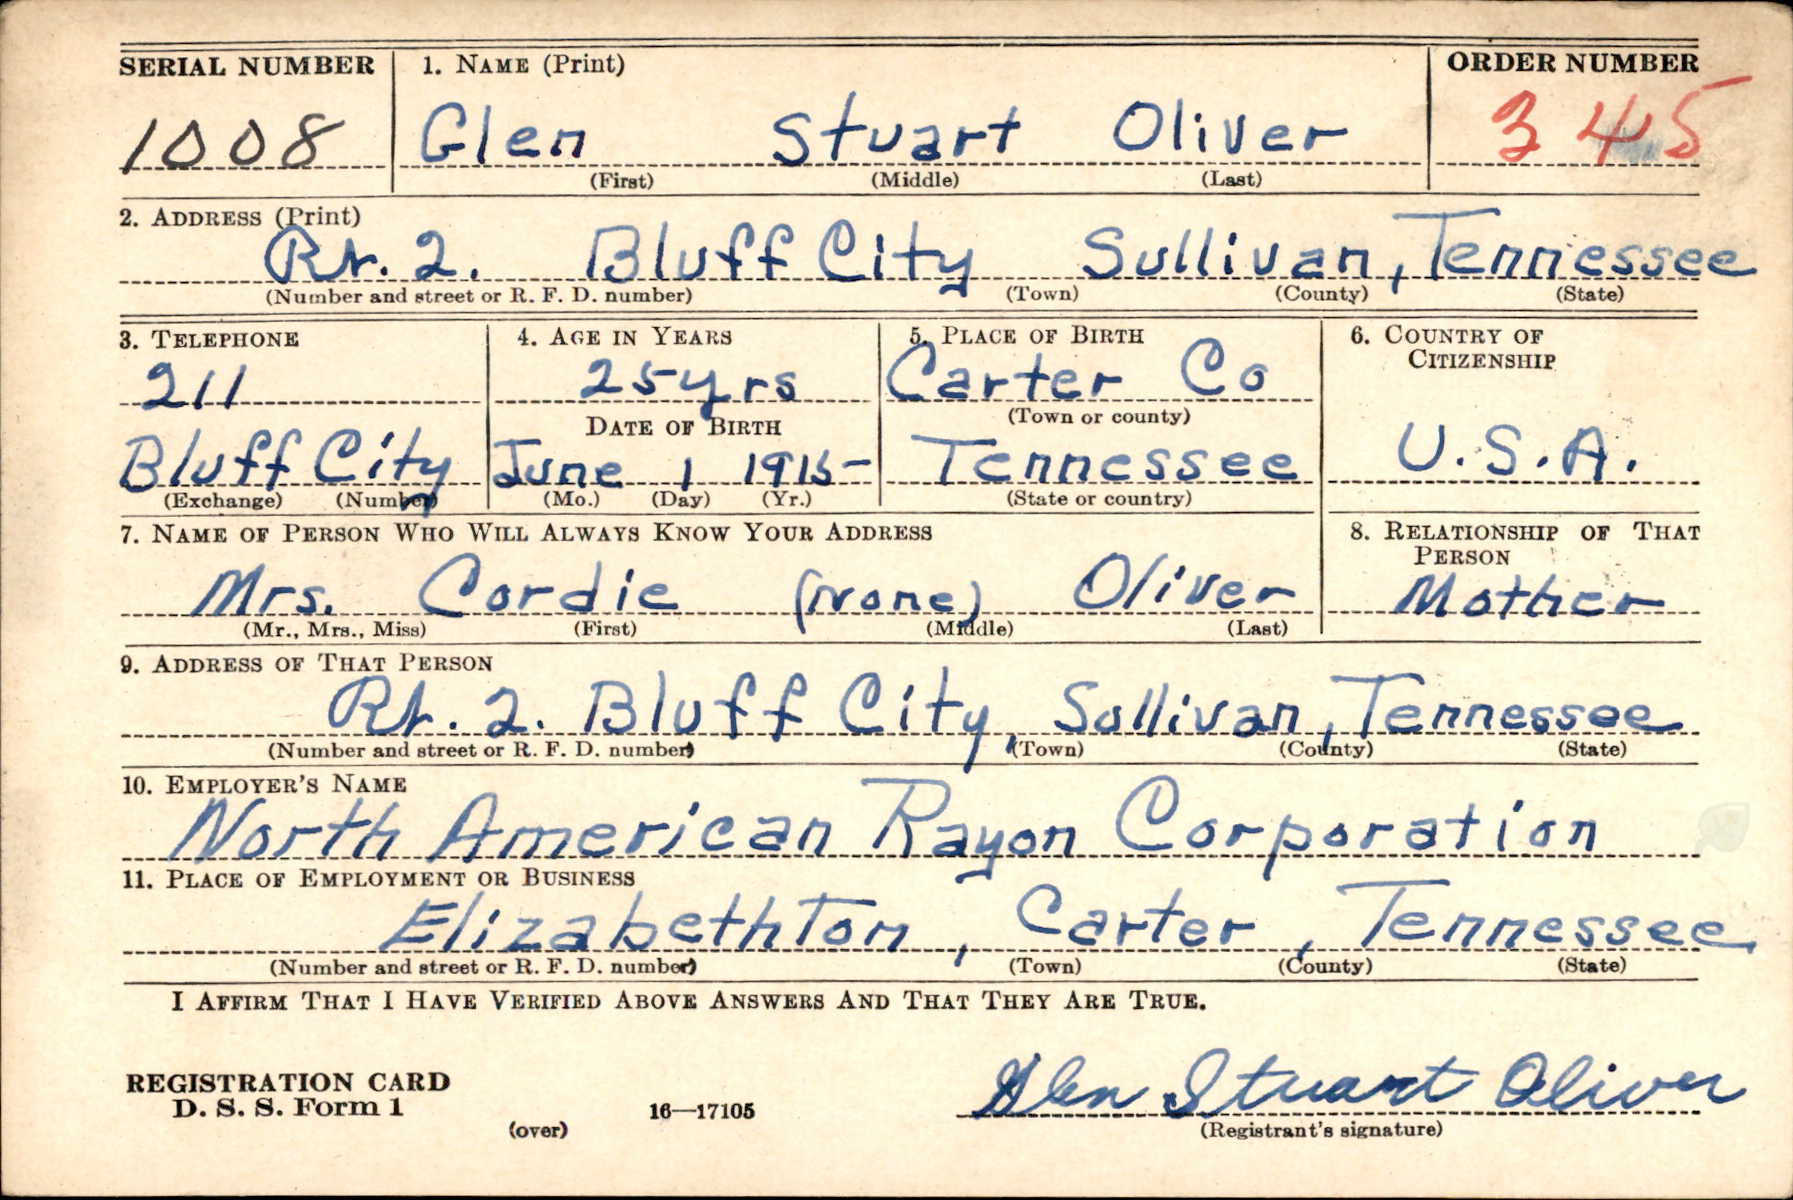 SERIAL NUMBER 1. NAME (Print) ORDER NUMBER
1008 Glen Stuart Oliver 345
(First) (Middle) (Last)
2. ADDRESS (Print)
Rt. 2. Bluff City Sullivan, Tennessee
(Number and street or R. F. D. number) (Town) (County) (State)
3. TELEPHONE 4. AGE IN YEARS 5. PLACE OF BIRTH 6. COUNTRY OF
CITIZENSHIP
211 25 yrs Carter Co
DATE OF BIRTH (Town or county)
Bluff City June 1 1915- Tennessee U.S.A.
(Exchange) (Number) (Mo.) (Day) (Yr.) (State or country)
7. NAME OF PERSON WHO WILL ALWAYS KNOW YOUR ADDRESS 8. RELATIONSHIP OF THAT
PERSON
Mrs. Cordie (none) Oliver Mother
(Mr., Mrs., Miss) (First) (Middle) (Last)
9. ADDRESS OF THAT PERSON
Rt. 2. Bluff City, Sullivan, Tennessee
(Number and street or R. F. D. number) (Town) (County) (State)
10. EMPLOYER'S NAME
North American Rayon Corporation
11. PLACE OF EMPLOYMENT OR BUSINESS
Elizabethton, Carter, Tennessee
(Number and street or R. F. D. number) (Town) (County) (State)
I AFFIRM THAT I HAVE VERIFIED ABOVE ANSWERS AND THAT THEY ARE TRUE.
REGISTRATION CARD
D. S. S. Form 1 16—17105 Glen Stuart Oliver
(over) (Registrant's signature)